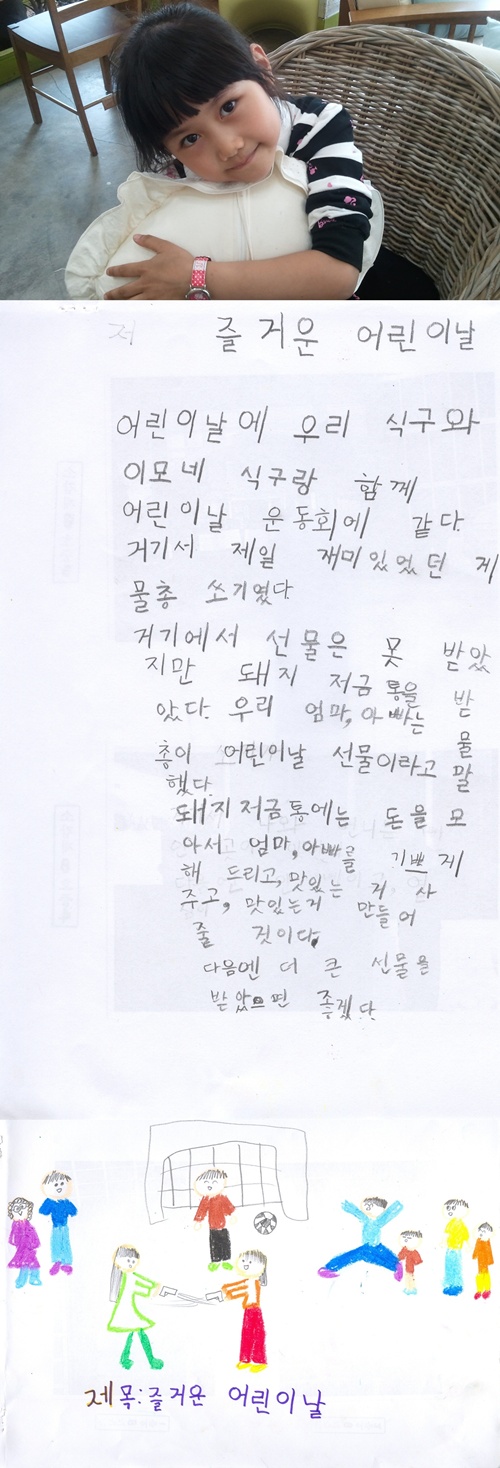 저 즐거운 어린이날
어린이날에 우리 식구와
이모네 식구랑 함께
어린이날 운동회에 갔다.
거기서 제일 재미있었던 게
물총 쏘기였다
거기에서 선물은 못 받았
지만 돼지 저금통을 받
았다. 우리 엄마, 아빠는 물
총이 어린이날 선물이라고 말
했다.
돼지저금통에는 돈을 모
아서 엄마, 아빠를 기쁘게
해 드리고, 맛있는 거 사
주고, 맛있는거 만들어
줄 것이다.
다음엔 더 큰 선물을
받았으면 좋겠다.
제목: 즐거운 어린이날